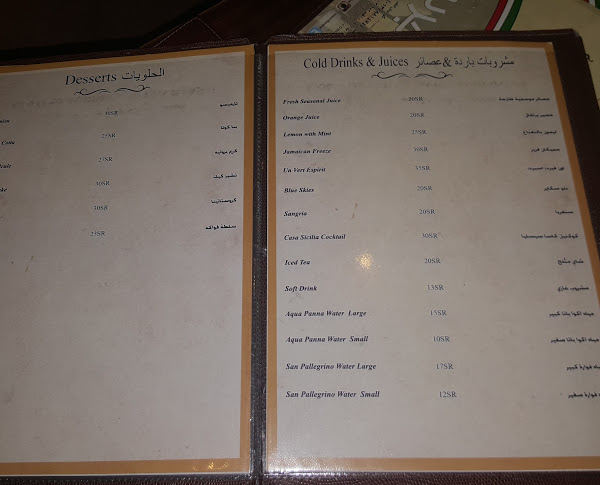 Desserts الحلويات
30SR
Cotta 25SR بناكوتا
25SR
30SR تشيز كيك
30SR
25SR سلطة فواكه
Cold Drinks & Juices مشروبات باردة & عصائر
Fresh Seasonal Juice 20SR
Orange Juice 20SR عصير برتقال
Lemon with Mint 25SR ليمون بالنعناع
Jamaican Freeze 30SR
Un Vert Espirit 35SR
Blue Skies 20SR بلو سكايز
Sangria 20SR سنغريا
Casa Sicilia Cocktail 30SR كوكتيل كاسا سيسليا
Iced Tea 20SR شاي مثلج
Soft Drink 13SR مشروب غازي
Aqua Panna Water Large 15SR مياه اكوا بانا كبير
Aqua Panna Water Small 10SR مياه اكوا بانا صغير
San Pellegrino Water Large 17SR مياه فوارة كبير
San Pellegrino Water Small 12SR فوارة صغير